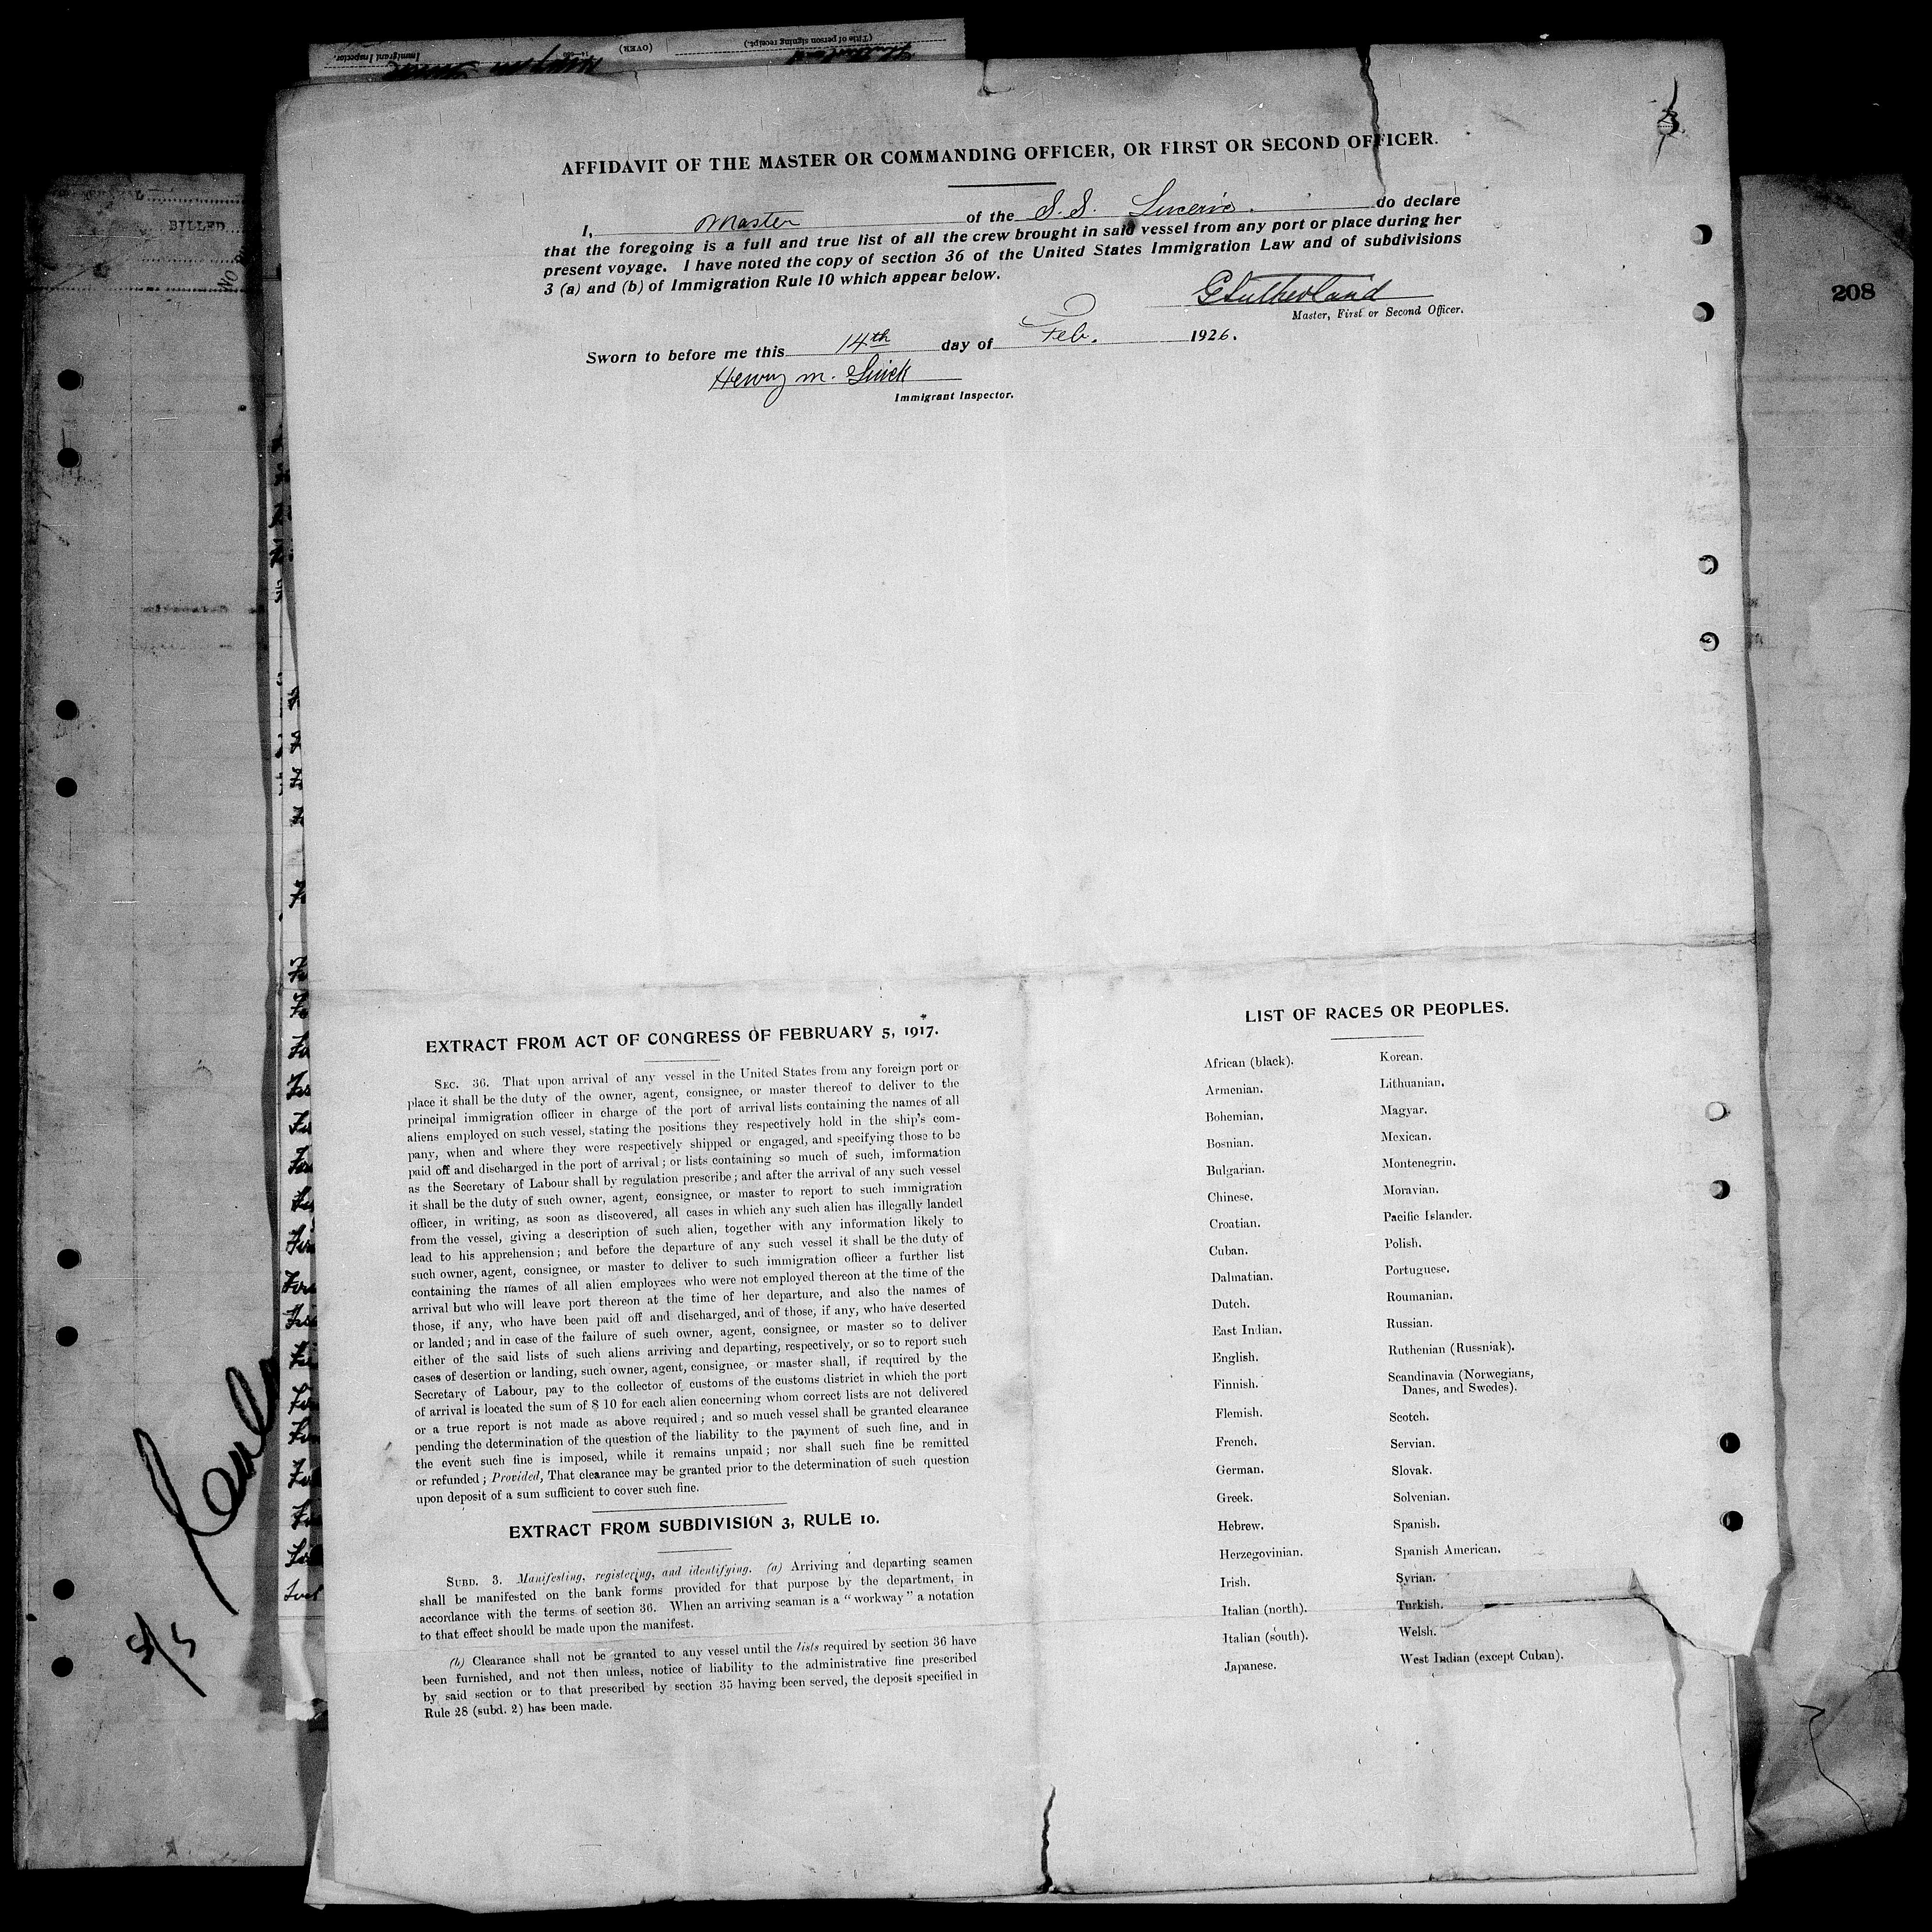 (Title of person signing receipt.)
(OVER)
Immigrant Inspector.
BILLED
208
3
AFFIDAVIT OF THE MASTER OR COMMANDING OFFICER, OR FIRST OR SECOND OFFICER.
I, Master of the S.S. do declare
that the foregoing is a full and true list of all the crew brought in said vessel from any port or place during her
present voyage. I have noted the copy of section 36 of the United States Immigration Law and of subdivisions
3 (a) and (b) of Immigration Rule 10 which appear below.
GSutherland
Master, First or Second Officer.
Sworn to before me this 14th day of Feb. 1926.
Henry M.
Immigrant Inspector.
EXTRACT FROM ACT OF CONGRESS OF FEBRUARY 5, 1917.
SEC. 36. That upon arrival of any vessel in the United States from any foreign port or
place it shall be the duty of the owner, agent, consignee, or master thereof to deliver to the
principal immigration officer in charge of the port of arrival lists containing the names of all
aliens employed on such vessel, stating the positions they respectively hold in the ship's com-
pany, when and where they were respectively shipped or engaged, and specifying those to be
paid off and discharged in the port of arrival; or lists containing so much of such, imformation
as the Secretary of Labour shall by regulation prescribe; and after the arrival of any such vessel
it shall be the duty of such owner, agent, consignee, or master to report to such immigration
officer, in writing, as soon as discovered, all cases in which any such alien has illegally landed
from the vessel, giving a description of such alien, together with any information likely to
lead to his apprehension; and before the departure of any such vessel it shall be the duty of
such owner, agent, consignee, or master to deliver to such immigration officer a further list
containing the names of all alien employees who were not employed thereon at the time of the
arrival but who will leave port thereon at the time of her departure, and also the names of
those, if any, who have been paid off and discharged, and of those, if any, who have deserted
or landed; and in case of the failure of such owner, agent, consignee, or master so to deliver
either of the said lists of such aliens arriving and departing, respectively, or so to report such
cases of desertion or landing, such owner, agent, consignee, or master shall, if required by the
Secretary of Labour, pay to the collector of customs of the customs district in which the port
of arrival is located the sum of $ 10 for each alien concerning whom correct lists are not delivered
or a true report is not made as above required; and so much vessel shall be granted clearance
pending the determination of the question of the liability to the payment of such fine, and in
the event such fine is imposed, while it remains unpaid; nor shall such fine be remitted
or refunded; Provided, That clearance may be granted prior to the determination of such question
upon deposit of a sum sufficient to cover such fine.
EXTRACT FROM SUBDIVISION 3, RULE 10.
SUBD. 3. Manifesting, registering, and identifying. (a) Arriving and departing seamen
shall be manifested on the bank forms provided for that purpose by the department, in
accordance with the terms of section 36. When an arriving seaman is a "workway" a notation
to that effect should be made upon the manifest.
(b) Clearance shall not be granted to any vessel until the lists required by section 36 have
been furnished, and not then unless, notice of liability to the administrative fine prescribed
by said section or to that prescribed by section 35 having been served, the deposit specified in
Rule 28 (subd. 2) has been made.
LIST OF RACES OR PEOPLES.
African (black).
Armenian.
Bohemian.
Bosnian.
Bulgarian.
Chinese.
Croatian.
Cuban.
Dalmatian.
Dutch.
East Indian.
English.
Finnish.
Flemish.
French.
German.
Greek.
Hebrew.
Herzegovinian.
Irish.
Italian (north).
Italian (south).
Japanese.
Korean.
Lithuanian.
Magyar.
Mexican.
Montenegrin.
Moravian.
Pacific Islander.
Polish.
Portuguese.
Roumanian.
Russian.
Ruthenian (Russniak).
Scandinavia (Norwegians,
Danes, and Swedes).
Scotch.
Servian.
Slovak.
Solvenian.
Spanish.
Spanish American.
Syrian.
Turkish.
Welsh.
West Indian (except Cuban).